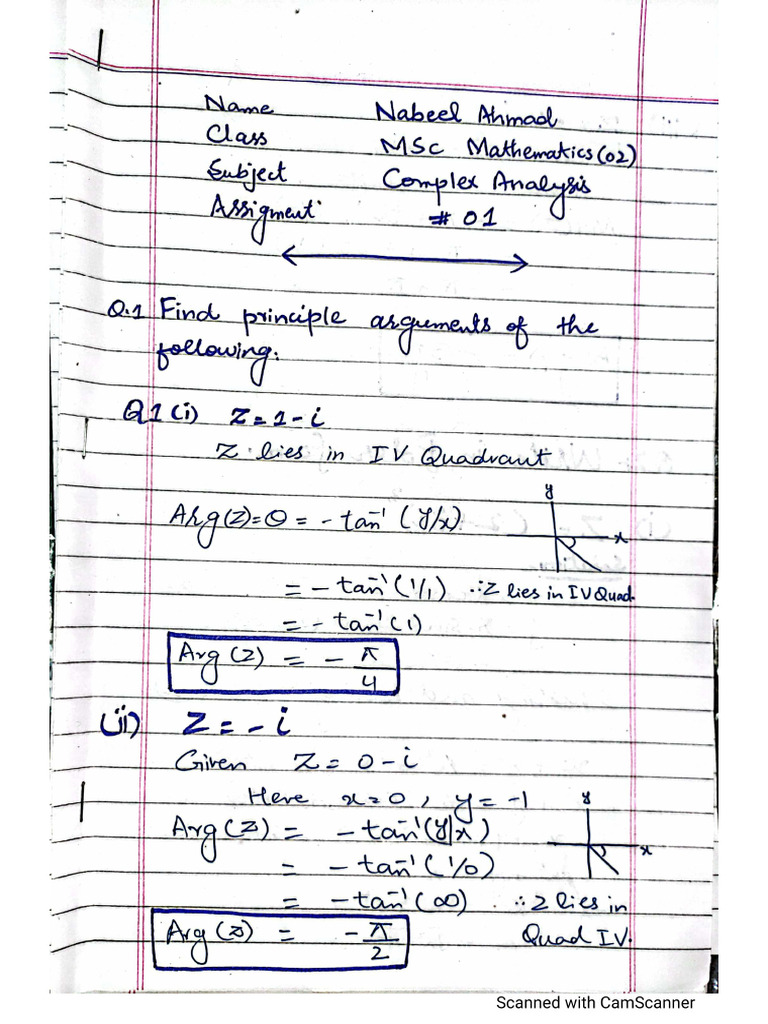 Name Nabeel Ahmad
Class MSc Mathematics (02)
Subject Complex Analysis
Assigment # 01
Q.1 Find principle arguments of the
following.
Q1 (i) Z = 1 - i
Z lies in IV Quadrant
y
Arg(z) = θ = - tan⁻¹ (y/x)
x
= - tan⁻¹ (1/1) ∵ Z lies in IV Quad.
= - tan⁻¹ (1)
Arg (z) = - π/4
(ii) Z = - i
Given Z = 0 - i
Here x = 0, y = -1
y
Arg (z) = - tan⁻¹ (y/x)
x
= - tan⁻¹ (1/0)
= - tan⁻¹ (∞) ∴ Z lies in
Arg (z) = - π/2 Quad IV.
Scanned with CamScanner